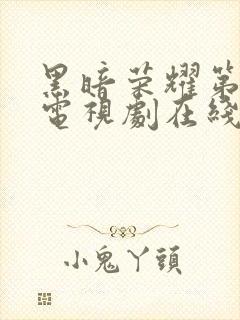 黑暗荣耀第
電視劇在綫
小鬼丫頭